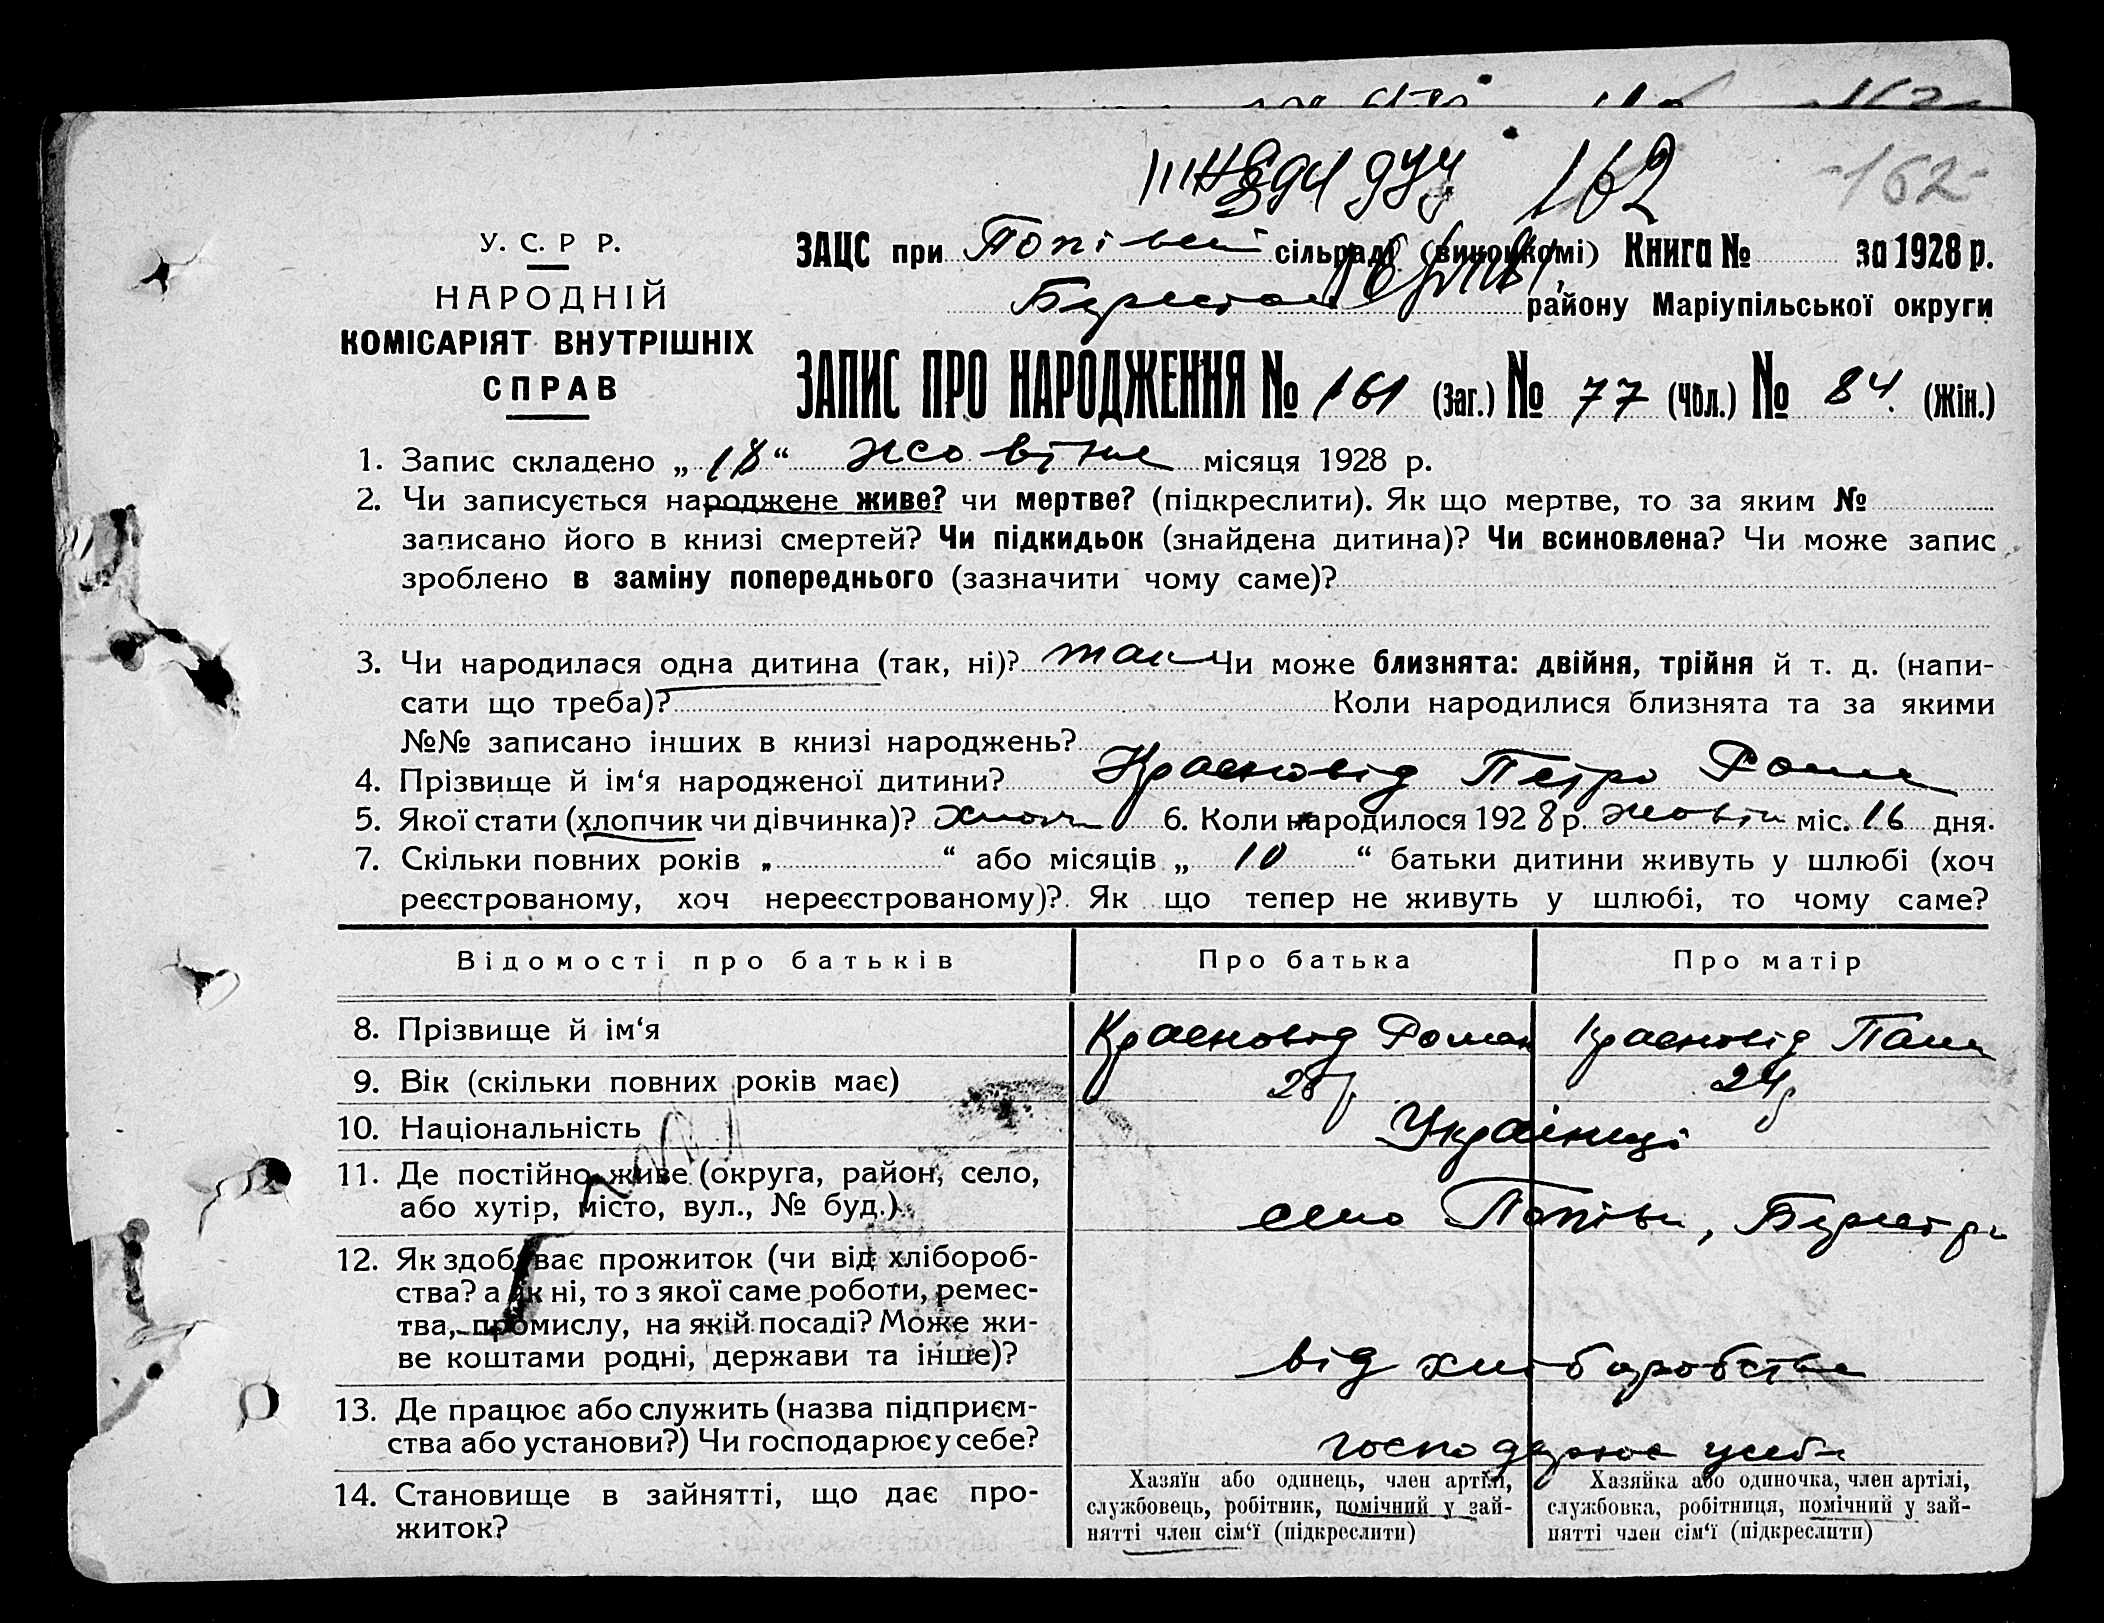 162
-162-
У. С. Р Р.
НАРОДНІЙ
КОМІСАРІЯТ ВНУТРІШНІХ
СПРАВ
ЗАЦС при Попівській сільраді (виконкомі) Книга № за 1928 р.
району Маріупільської округи
ЗАПИС ПРО НАРОДЖЕННЯ № 161 (Заг.) № 77 (Чол.) № 84 (Жін.)
1. Запис складено „ 18 “ жовтня місяця 1928 р.
2. Чи записується народжене живе? чи мертве? (підкреслити). Як що мертве, то за яким №
записано його в книзі смертей? Чи підкидьок (знайдена дитина)? Чи всиновлена? Чи може запис
зроблено в заміну попереднього (зазначити чому саме)?
3. Чи народилася одна дитина (так, ні)? так Чи може близнята: двійня, трійня й т. д. (напи-
сати що треба)? Коли народилися близнята та за якими
№№ записано інших в книзі народжень?
4. Прізвище й ім‘я народженої дитини? Красновід Петро Роман
5. Якої стати (хлопчик чи дівчинка)? Хлопч 6. Коли народилося 1928 р. жовтн міс. 16 дня.
7. Скільки повних років „ “ або місяців „ 10 “ батьки дитини живуть у шлюбі (хоч
реєстрованому, хоч нереєстрованому)? Як що тепер не живуть у шлюбі, то чому саме?
Відомості про батьків Про батька Про матір
8. Прізвище й ім‘я Красновід Роман Красновід
9. Вік (скільки повних років має) 28 р 24 р
10. Національність Українці
11. Де постійно живе (округа, район, село,
або хутір, місто, вул., № буд.). село Попівка,
12. Як здобуває прожиток (чи від хлібороб-
ства? а як ні, то з якої саме роботи, ремес-
тва, промислу, на якій посаді? Може жи-
ве коштами родні, держави та інше)? від хліборобства
13. Де працює або служить (назва підприєм-
ства або установи?) Чи господарює у себе? господарює у себе
14. Становище в зайнятті, що дає про-
житок?
Хазяїн або одинець, член артілі,
службовець, робітник, помічний у зай-
нятті член сім‘ї (підкреслити)
Хазяйка або одиночка, член артілі,
службовка, робітниця, помічний у зай-
нятті член сім‘ї (підкреслити)